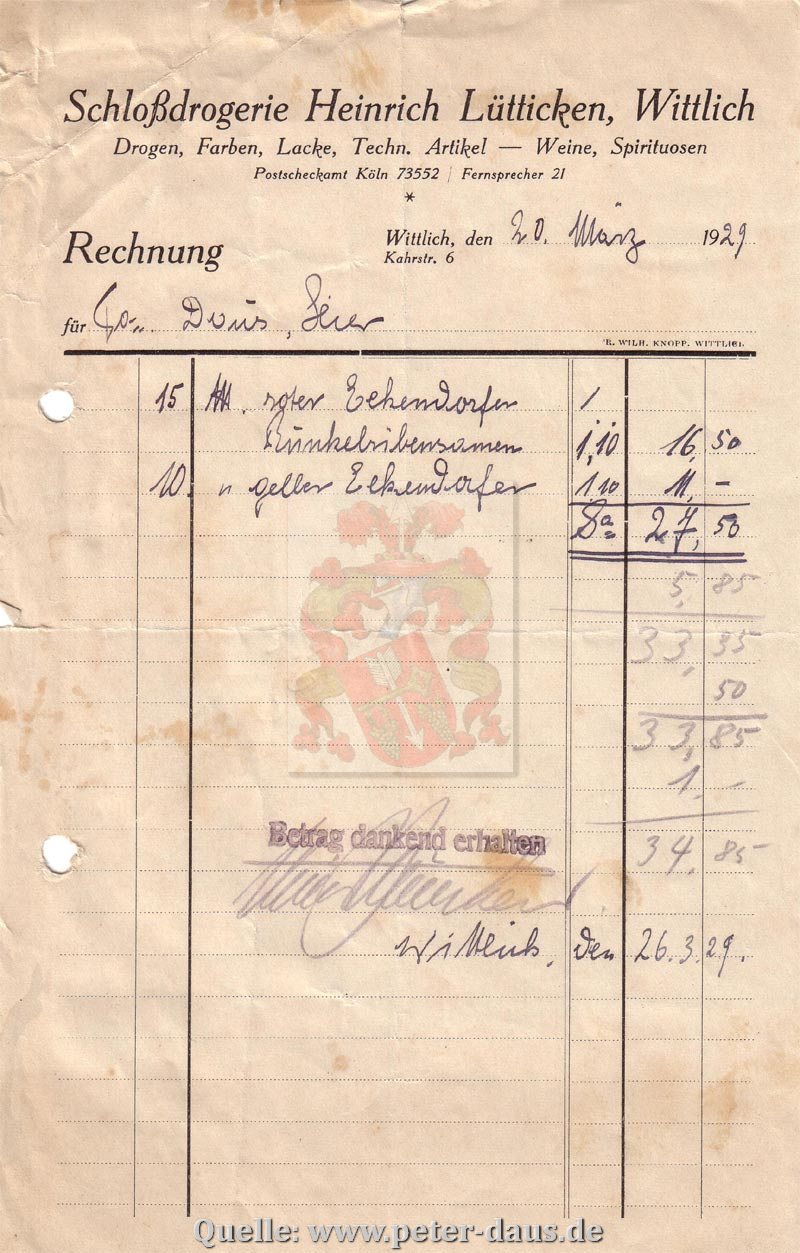 Schloßdrogerie Heinrich Lütticken, Wittlich
Drogen, Farben, Lacke, Techn. Artikel — Weine, Spirituosen
Postscheckamt Köln 73552 | Fernsprecher 21
*
Rechnung
Wittlich, den 20. März 1929
Kahrstr. 6
für Daus, Hier
WILH. KNOPP. WITTLICH.
15 roter Eckendorfer
Runkelribensamen 1,10 16,50
10 " gelber Eckendorfer 1,10 11,-
Sa 27,50
5,85
33,35
50
33,85
1.-
Betrag dankend erhalten
34,85
Wittlich, den 26.3.29.
Quelle: www.peter-daus.de